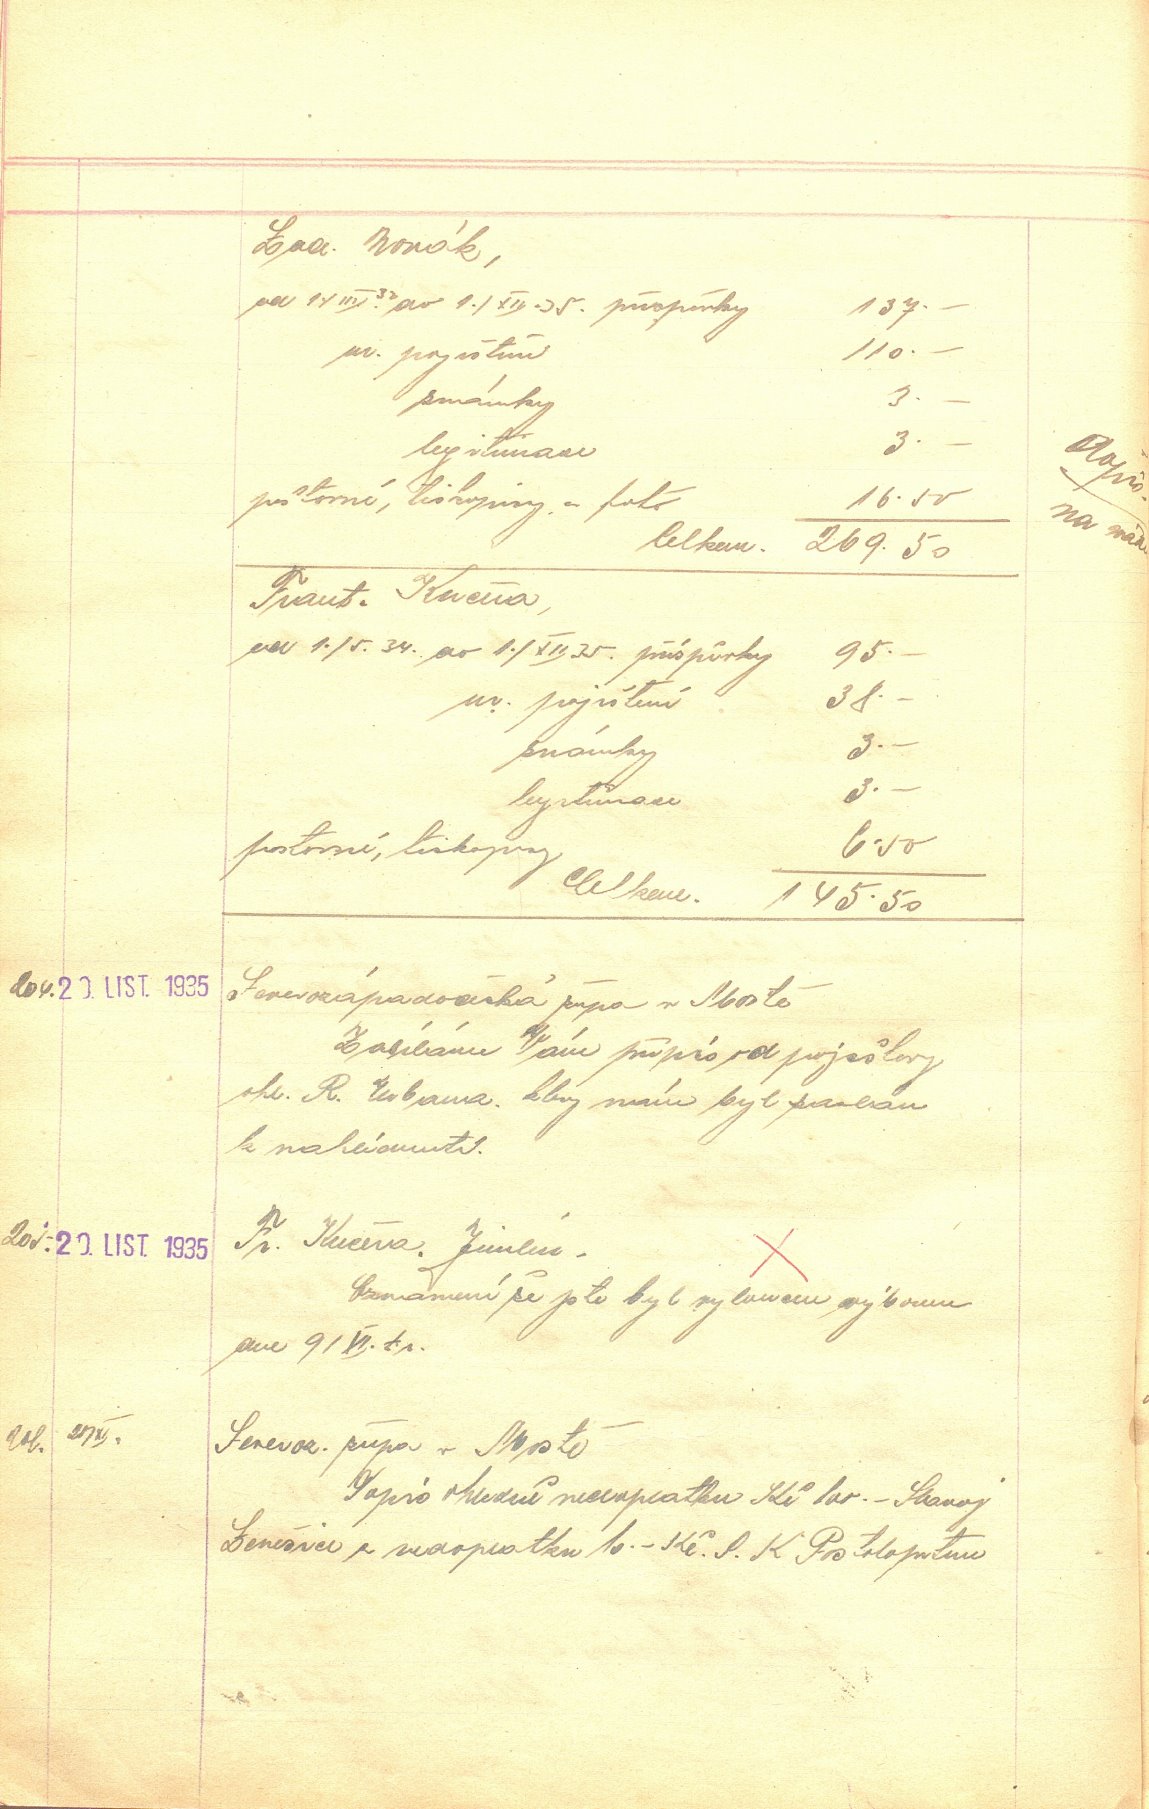 Novák,
od 1/VIII 32 do 1./XII.35. příspěvky 137.–
úr. pojištění 110.–
známky 3.–
legitimace 3.–
poštovné, tiskopisy a foto 16.50
Celkem. 269.50
Frant. Kučera,
od 1./5. 34. do 1./XII 35. příspěvky 95.–
úr. pojištění 38.–
známky 3.–
legitimace 3.–
poštovné, tiskopisy 6.50
Celkem. 145.50
Dopis
na
204. 20. LIST. 1935 Severozápadočeská župa v Mostě
Zasíláme Vám přípis od pojišťovny
ohl. R. Urbana. který nám byl zaslán
k nahlédnutí.
205. 20. LIST. 1935 Fr. Kučera. Jimlín.
Oznámení že jste byl vyloučen výborem
dne 9/VI. t.r.
206. 27/XI. Severoz. župa v Mostě
Dopis ohledně nedoplatku Kč Slavoj
Ženešice a nedoplatku 10.– Kč. S. K Postoloprtum